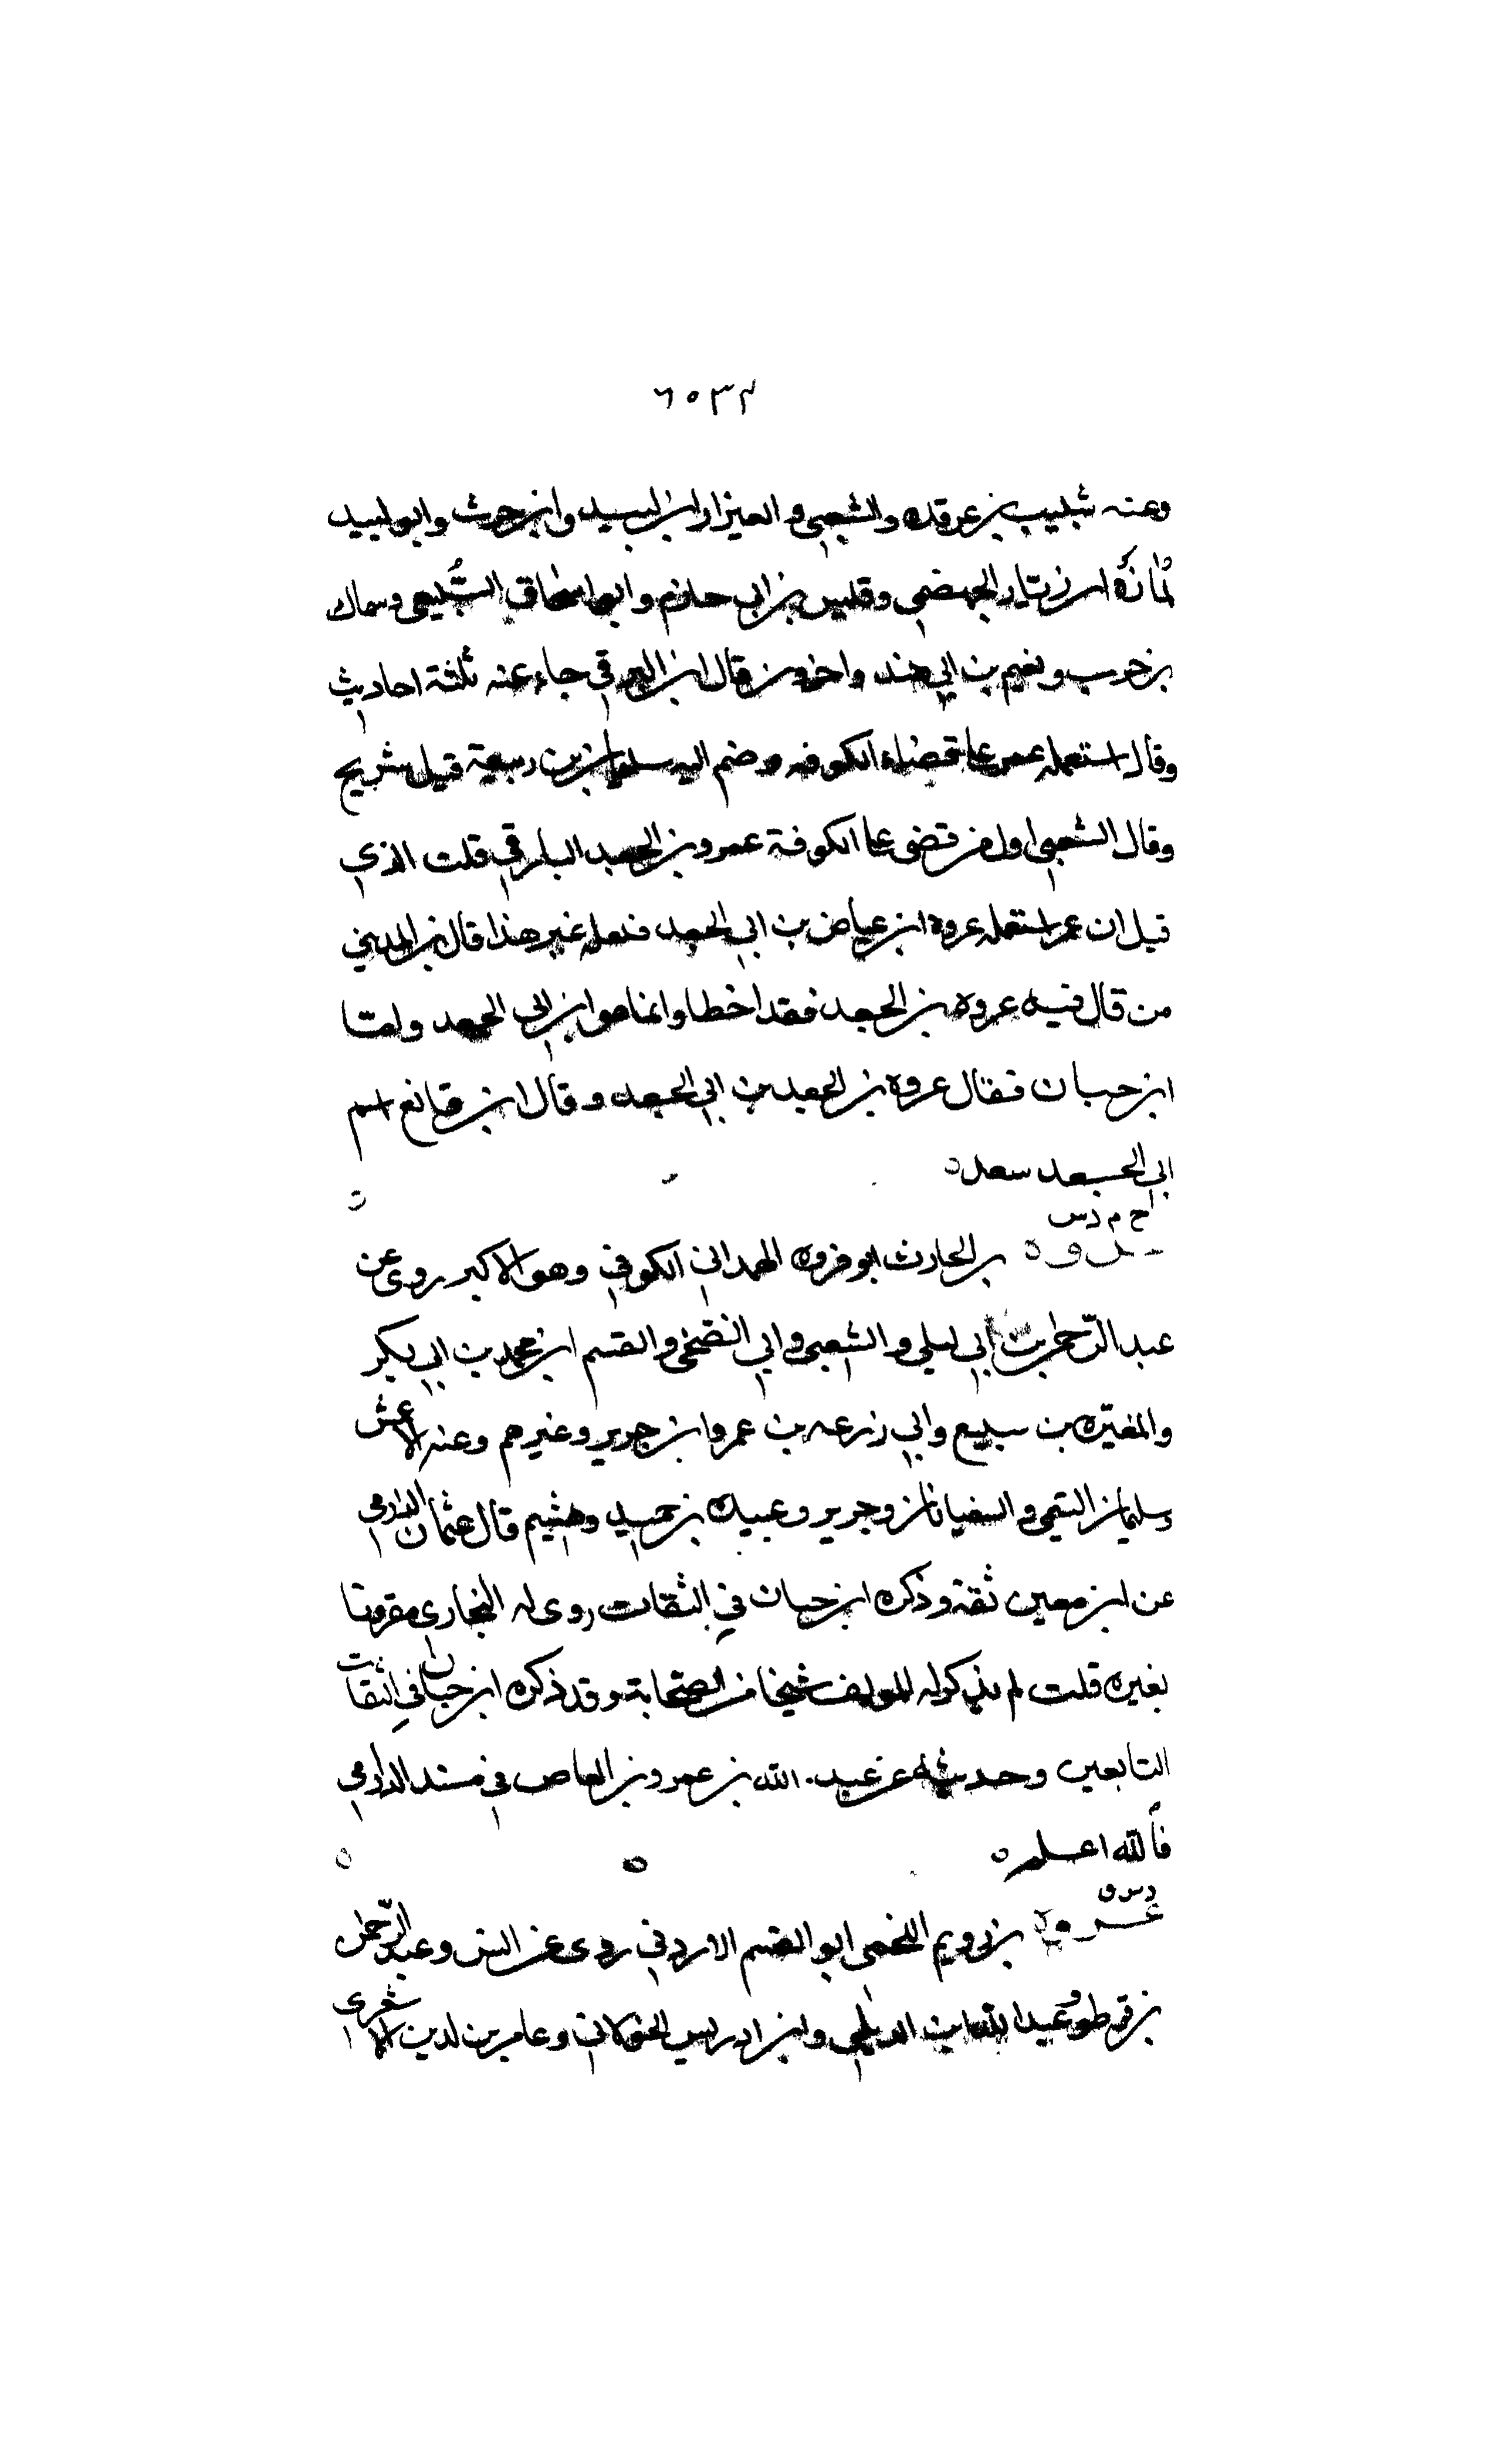 وعنه شبيب بن عرقده والشعبي والعيزار ابن ابسيد وابن حريث وابو لبيد
لمازة ابن زبار الجهضمي وقيس بن ابي حازم وابو اسحاق السبيعي وسماك
بن حرب ونعيم بن ابي هند واخرون قال ابن البرقي جاء عنه ثلثة احاديث
وقال استعمله عمر على قضاء الكوفه وضم اليه سلمان بن ربيعة قبل شريح
وقال الشعبي اول من قضى على الكوفة عمرو بن الجعد البارقي قلت الذي
قيل ان عمر استعمله عروه ابن عياض بن ابي الجعد فلعله غير هذا قال بن المديني
من قال فيه عروه بن الجعد فقد اخطا وانما هو ابن ابي الجعد واما
ابن حبان فقال عروة بن الجعد بن ابي الجعد وقال ابن قانع اسم
ابي الجعد سعد
خ م د س
عروه بن الحارث ابو فروه الهمداني الكوفي وهو الاكبر روى عن
عبد الرحمن بن ابي ليلى والشعبي وابي الضحى والقسم ابن محمد بن ابي بكر
والمغيره بن سبيع وابي زرعه بن عمرو ابن جرير وغيرهم وعنه الاعمش
وسليمان التيمي والسفيانان وجرير وعبيده بن حميد وهشيم قال عثمان الدارمي
عن ابن معين ثقة وذكره ابن حبان في الثقات روى له البخاري مقرونا
بغيره قلت لم يذكر له المولف شيخا من الصحابة وقد ذكره ابن حبان في الثقات
التابعين وحديثه عن عبد الله بن عمرو بن العاص في مسند الدارمي
فالله اعلم
د س ق
عروة بن رويم اللخمي ابو القسم الاردني روى عن انس وعبد الرحمن
بن قرط وعبد الله بن الديلمي وابن ادريس الخولاني وعامر بن لدين الاشعري